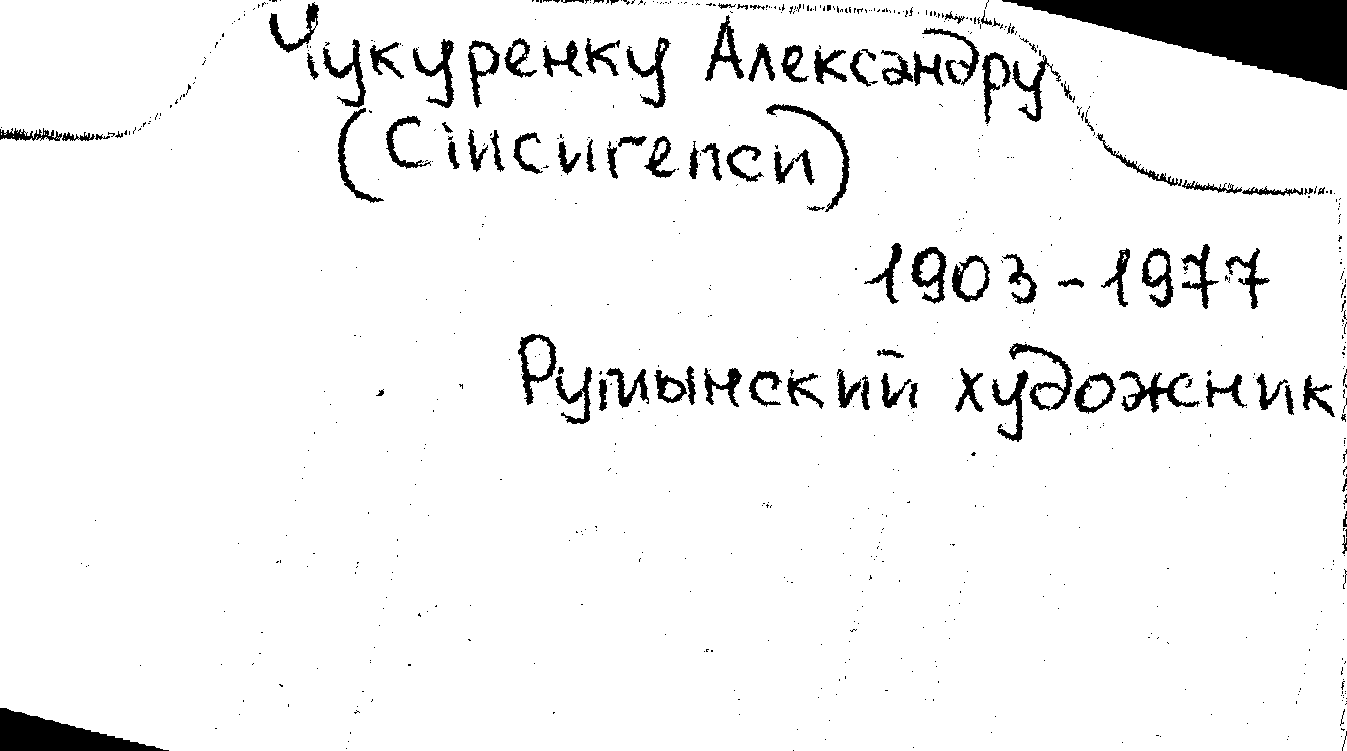 Чукуренку Александру
(Ciucurencu)
1903-1977
Румынский художник